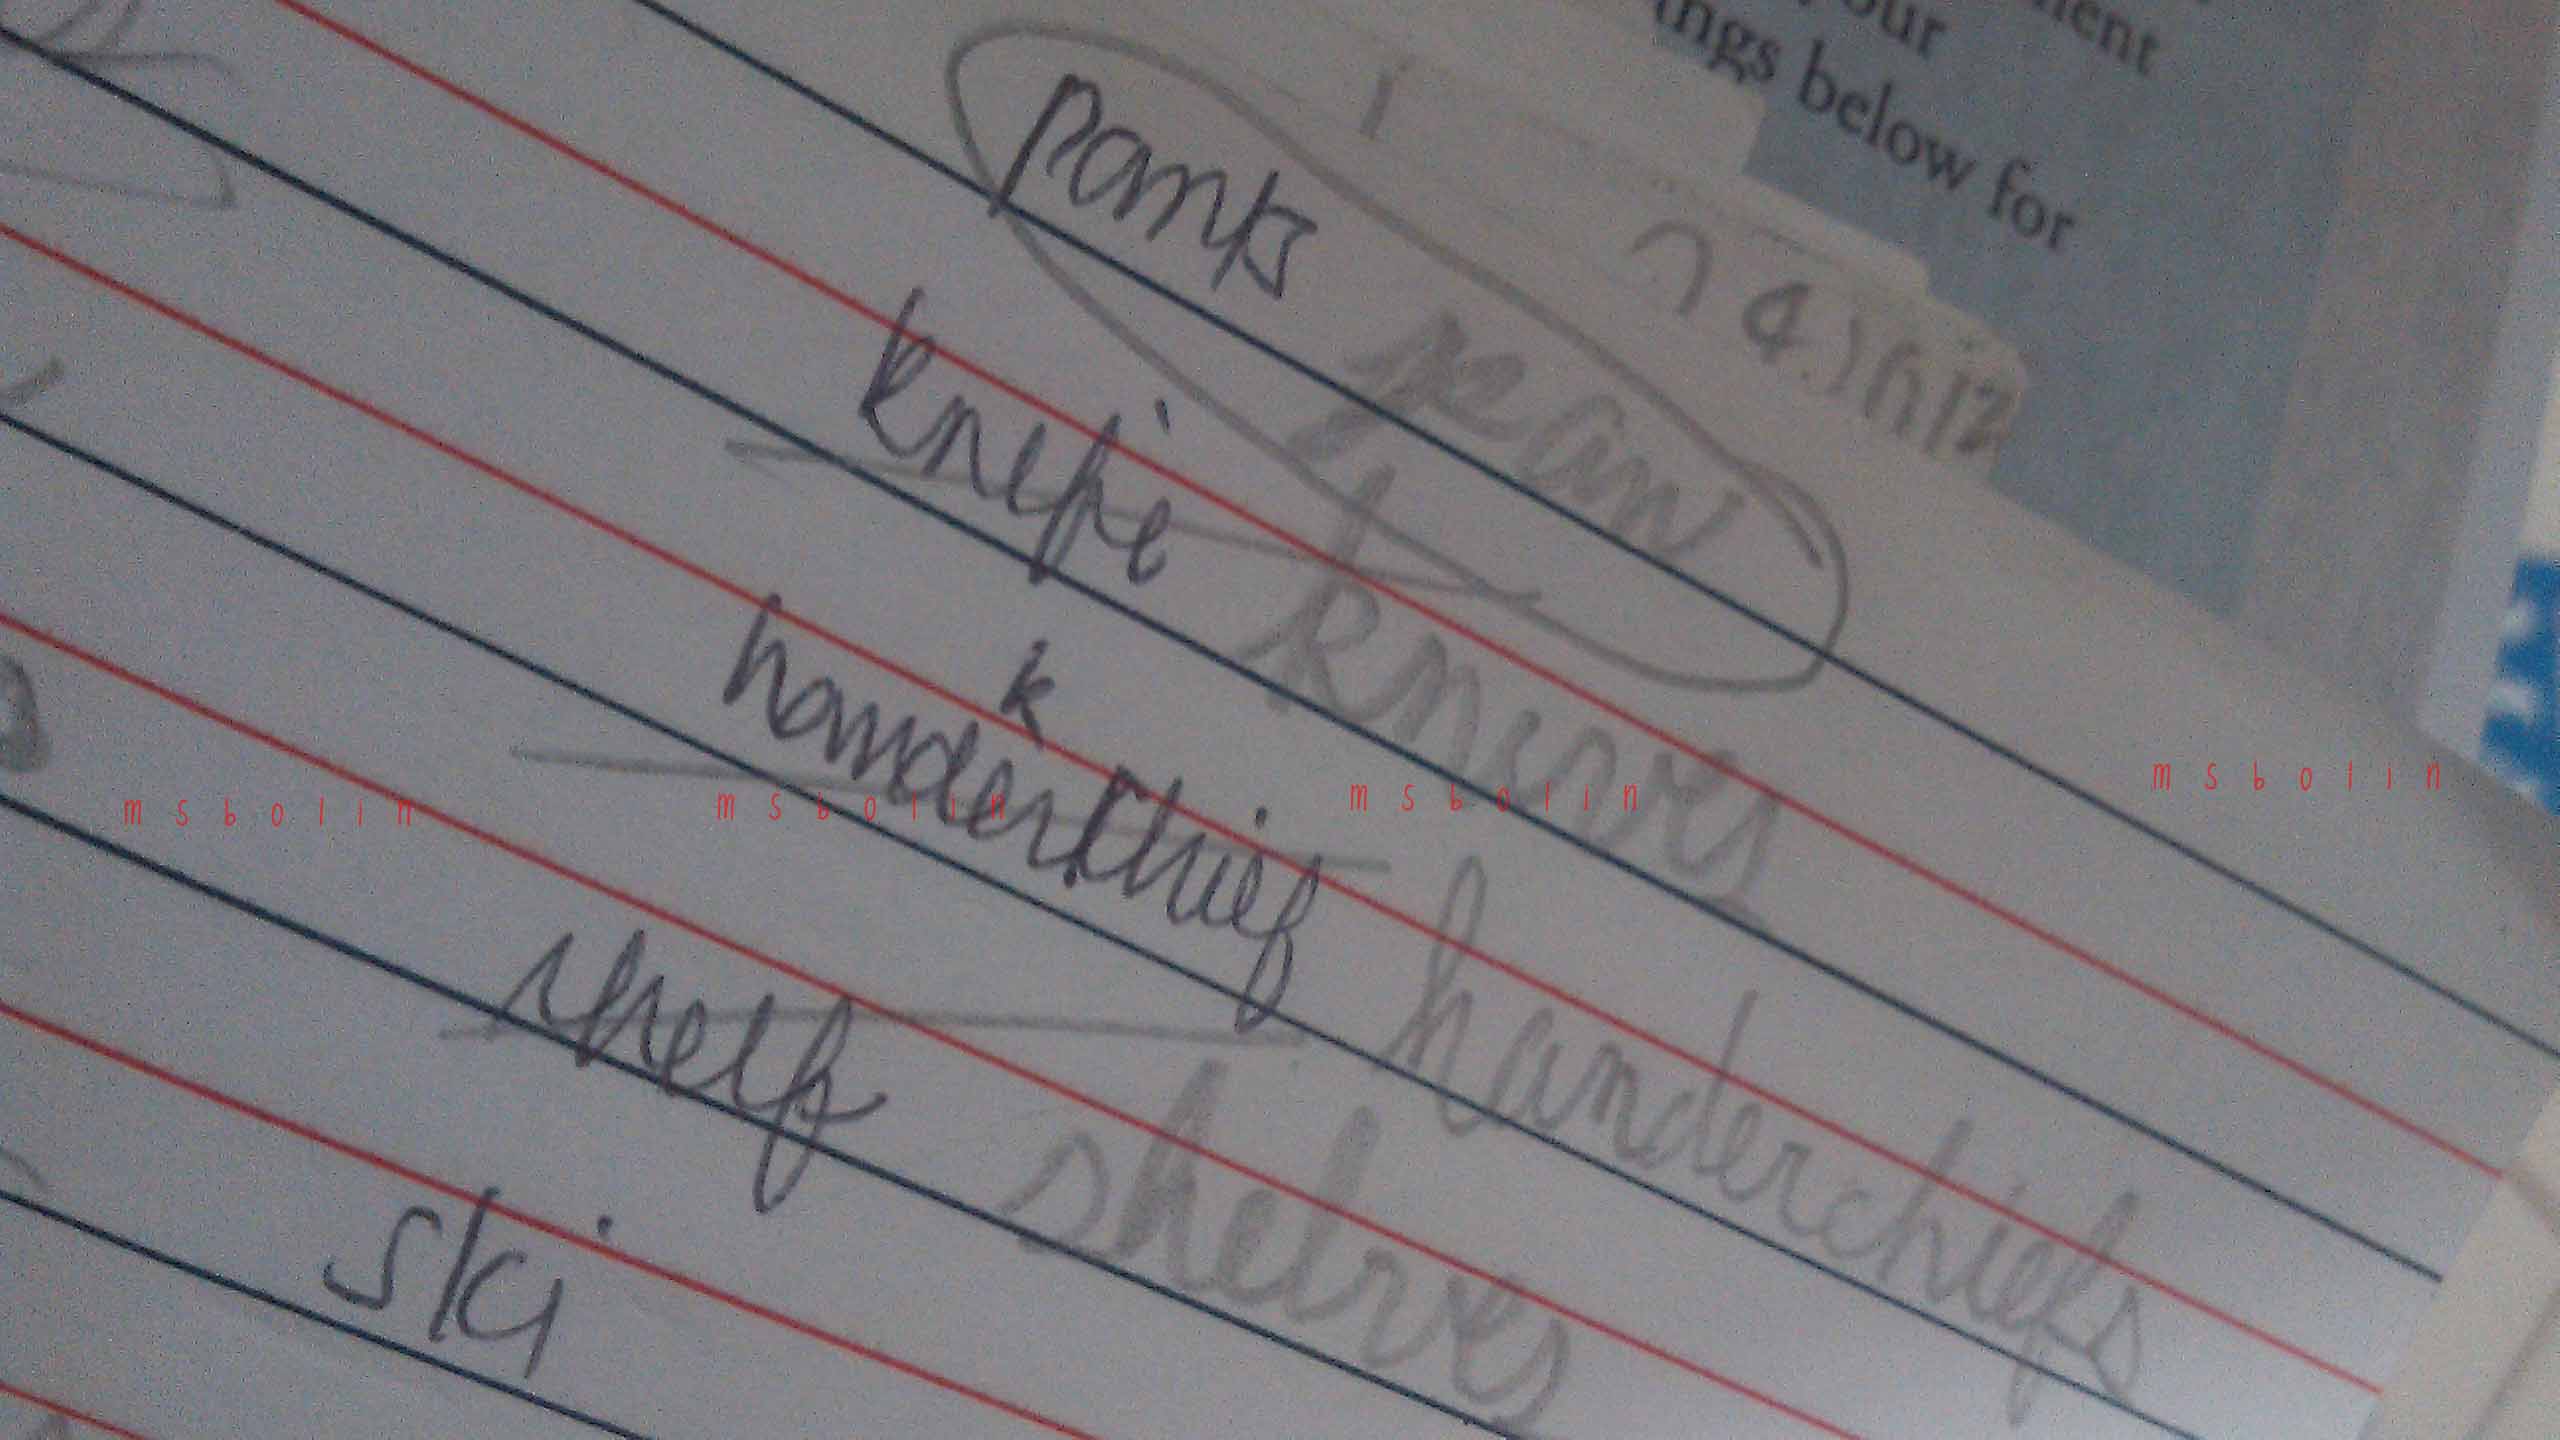 ment
your
ings below for
pants
knife knives
k
handerchief handerchiefs
shelf shelves
ski
msbolin msbolin msbolin msbolin